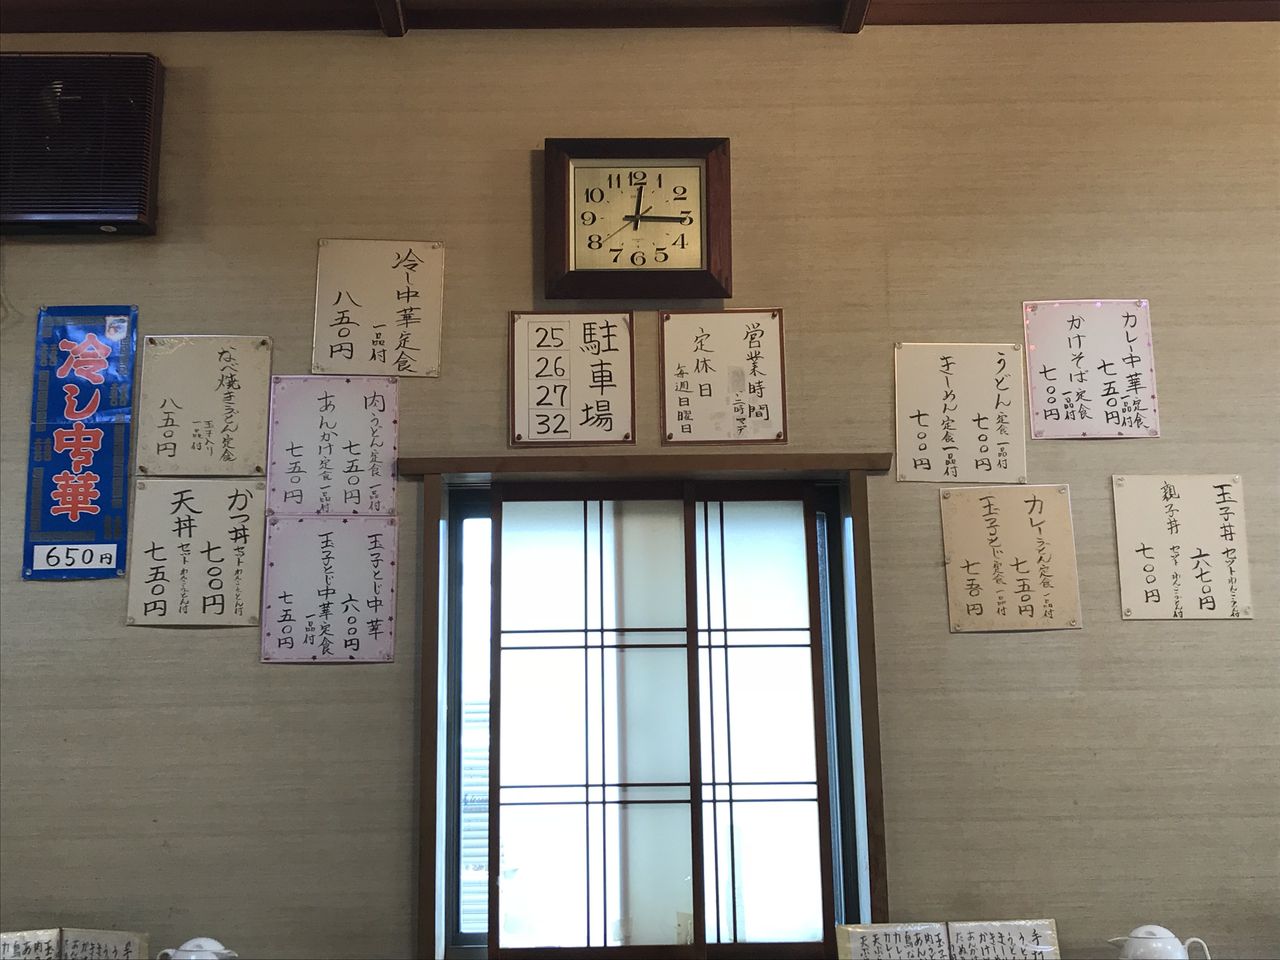 冷し中華
650円
なべ焼きうどん定食
玉子入り
一品付
八五〇円
かつ丼セットわんこうどん付
七〇〇円
天丼セットわんこうどん付
七五〇円
冷し中華定食
一品付
八五〇円
肉うどん定食一品付
七五〇円
あんかけ定食一品付
七五〇円
玉子とじ中華
六〇〇円
玉子とじ中華定食
一品付
七五〇円
11 12 1
10 2
9 3
8 4
7 6 5
駐車場
25
26
27
32
営業時間
定休日
毎週日曜日
うどん定食一品付
七〇〇円
きしめん定食一品付
七〇〇円
カレー中華定食一品付
七五〇円
かけそば定食一品付
七〇〇円
カレーうどん定食一品付
七五〇円
玉子とじ定食一品付
七五〇円
玉子丼セットわんこうどん付
六七〇円
親子丼セットわんこうどん付
七〇〇円